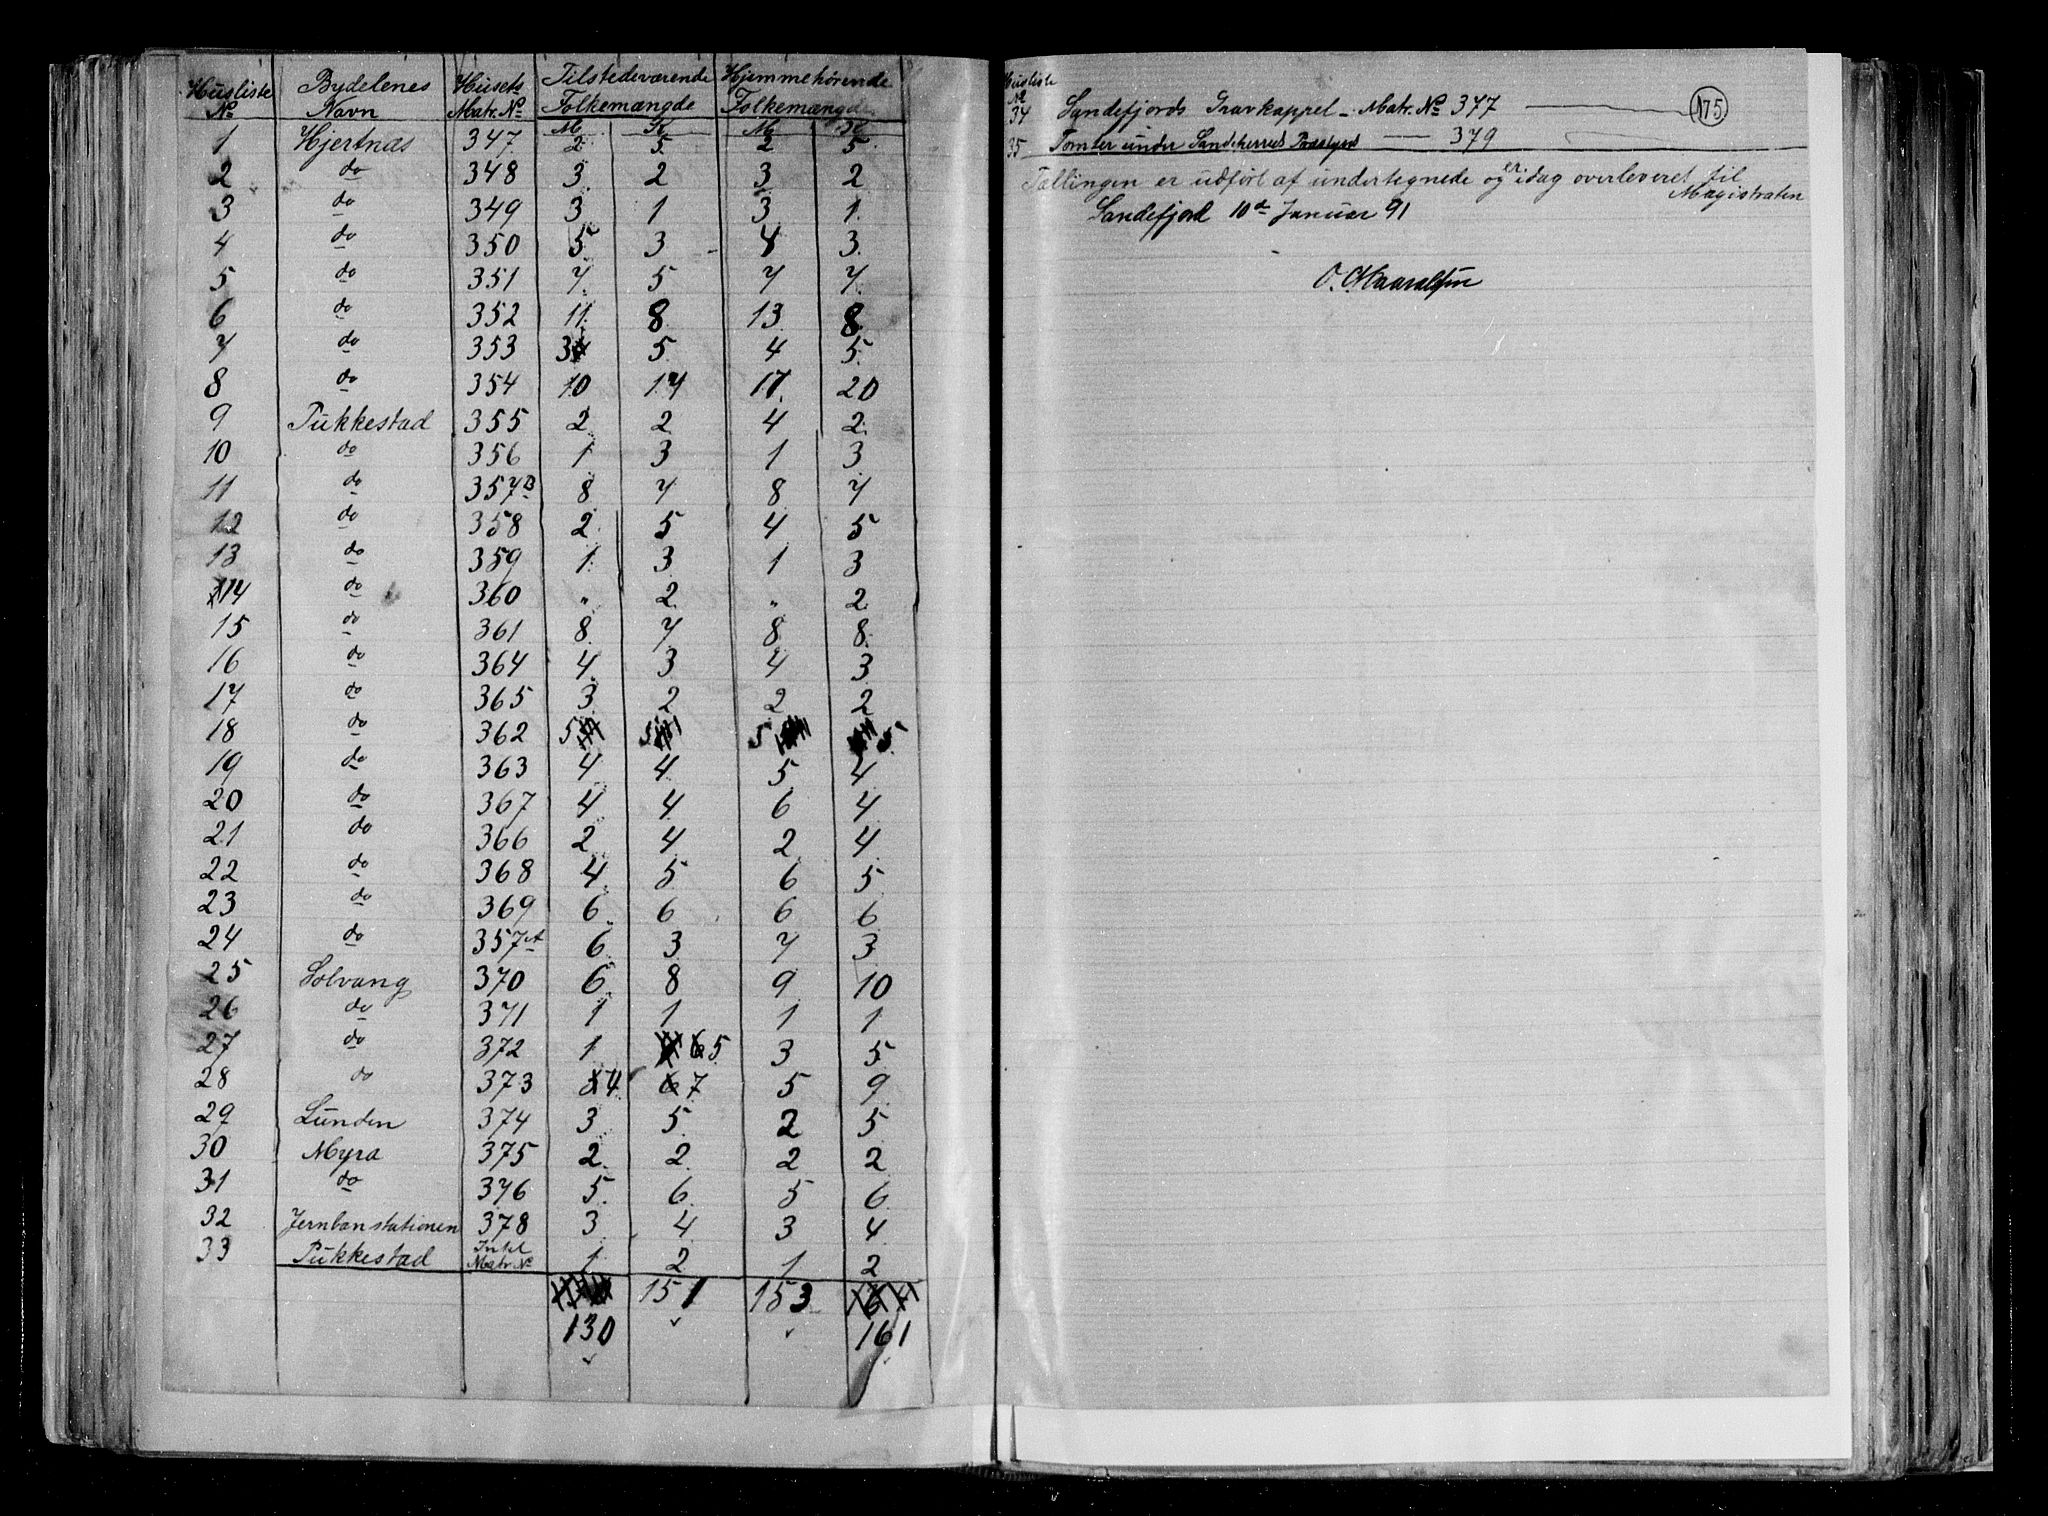 Husliste Bydelenes Husets Tilstedeværende Hjemmehørende
No Navn Matr. No Folkemængde Folkemængde
M K M K
1 Hjertnæs 347 2 5 2 5
2 do 348 3 2 3 2
3 do 349 3 1 3 1
4 do 350 5 3 4 3
5 do 351 7 5 7 7
6 do 352 11 8 13 8
7 do 353 3 5 4 5
8 do 354 10 17 17 20
9 Pukkestad 355 2 2 4 2
10 do 356 1 3 1 3
11 do 357B 8 7 8 7
12 do 358 2 5 4 5
13 do 359 1 3 1 3
14 do 360 " 2 " 2
15 do 361 8 7 8 8
16 do 364 4 3 4 3
17 do 365 3 2 2 2
18 do 362 5 5 5 5
19 do 363 4 4 5 4
20 do 367 4 4 6 4
21 do 366 2 4 2 4
22 do 368 4 5 6 5
23 do 369 6 6 6 6
24 do 357A 6 3 7 3
25 Solvang 370 6 8 9 10
26 do 371 1 1 1 1
27 do 372 1 6 5 3 5
28 do 373 4 6 7 5 9
29 Lunden 374 3 5 2 5
30 Myra 375 2 2 2 2
31 do 376 5 6 5 6
32 Jernbanstationen 378 3 4 3 4
33 Pukkestad Inkl Matr. No 1 2 1 2
151 153
130 161
Husliste
No
34 Sandefjords Gravkappel - Matr. No 377
175
35 Tomter under Sandeherred Præstgrd — 379
Tællingen er udført af undertegnede og er idag overleveret til
Magistraten
Sandefjord 10d Januar 91
O. Chr. Haraldsen